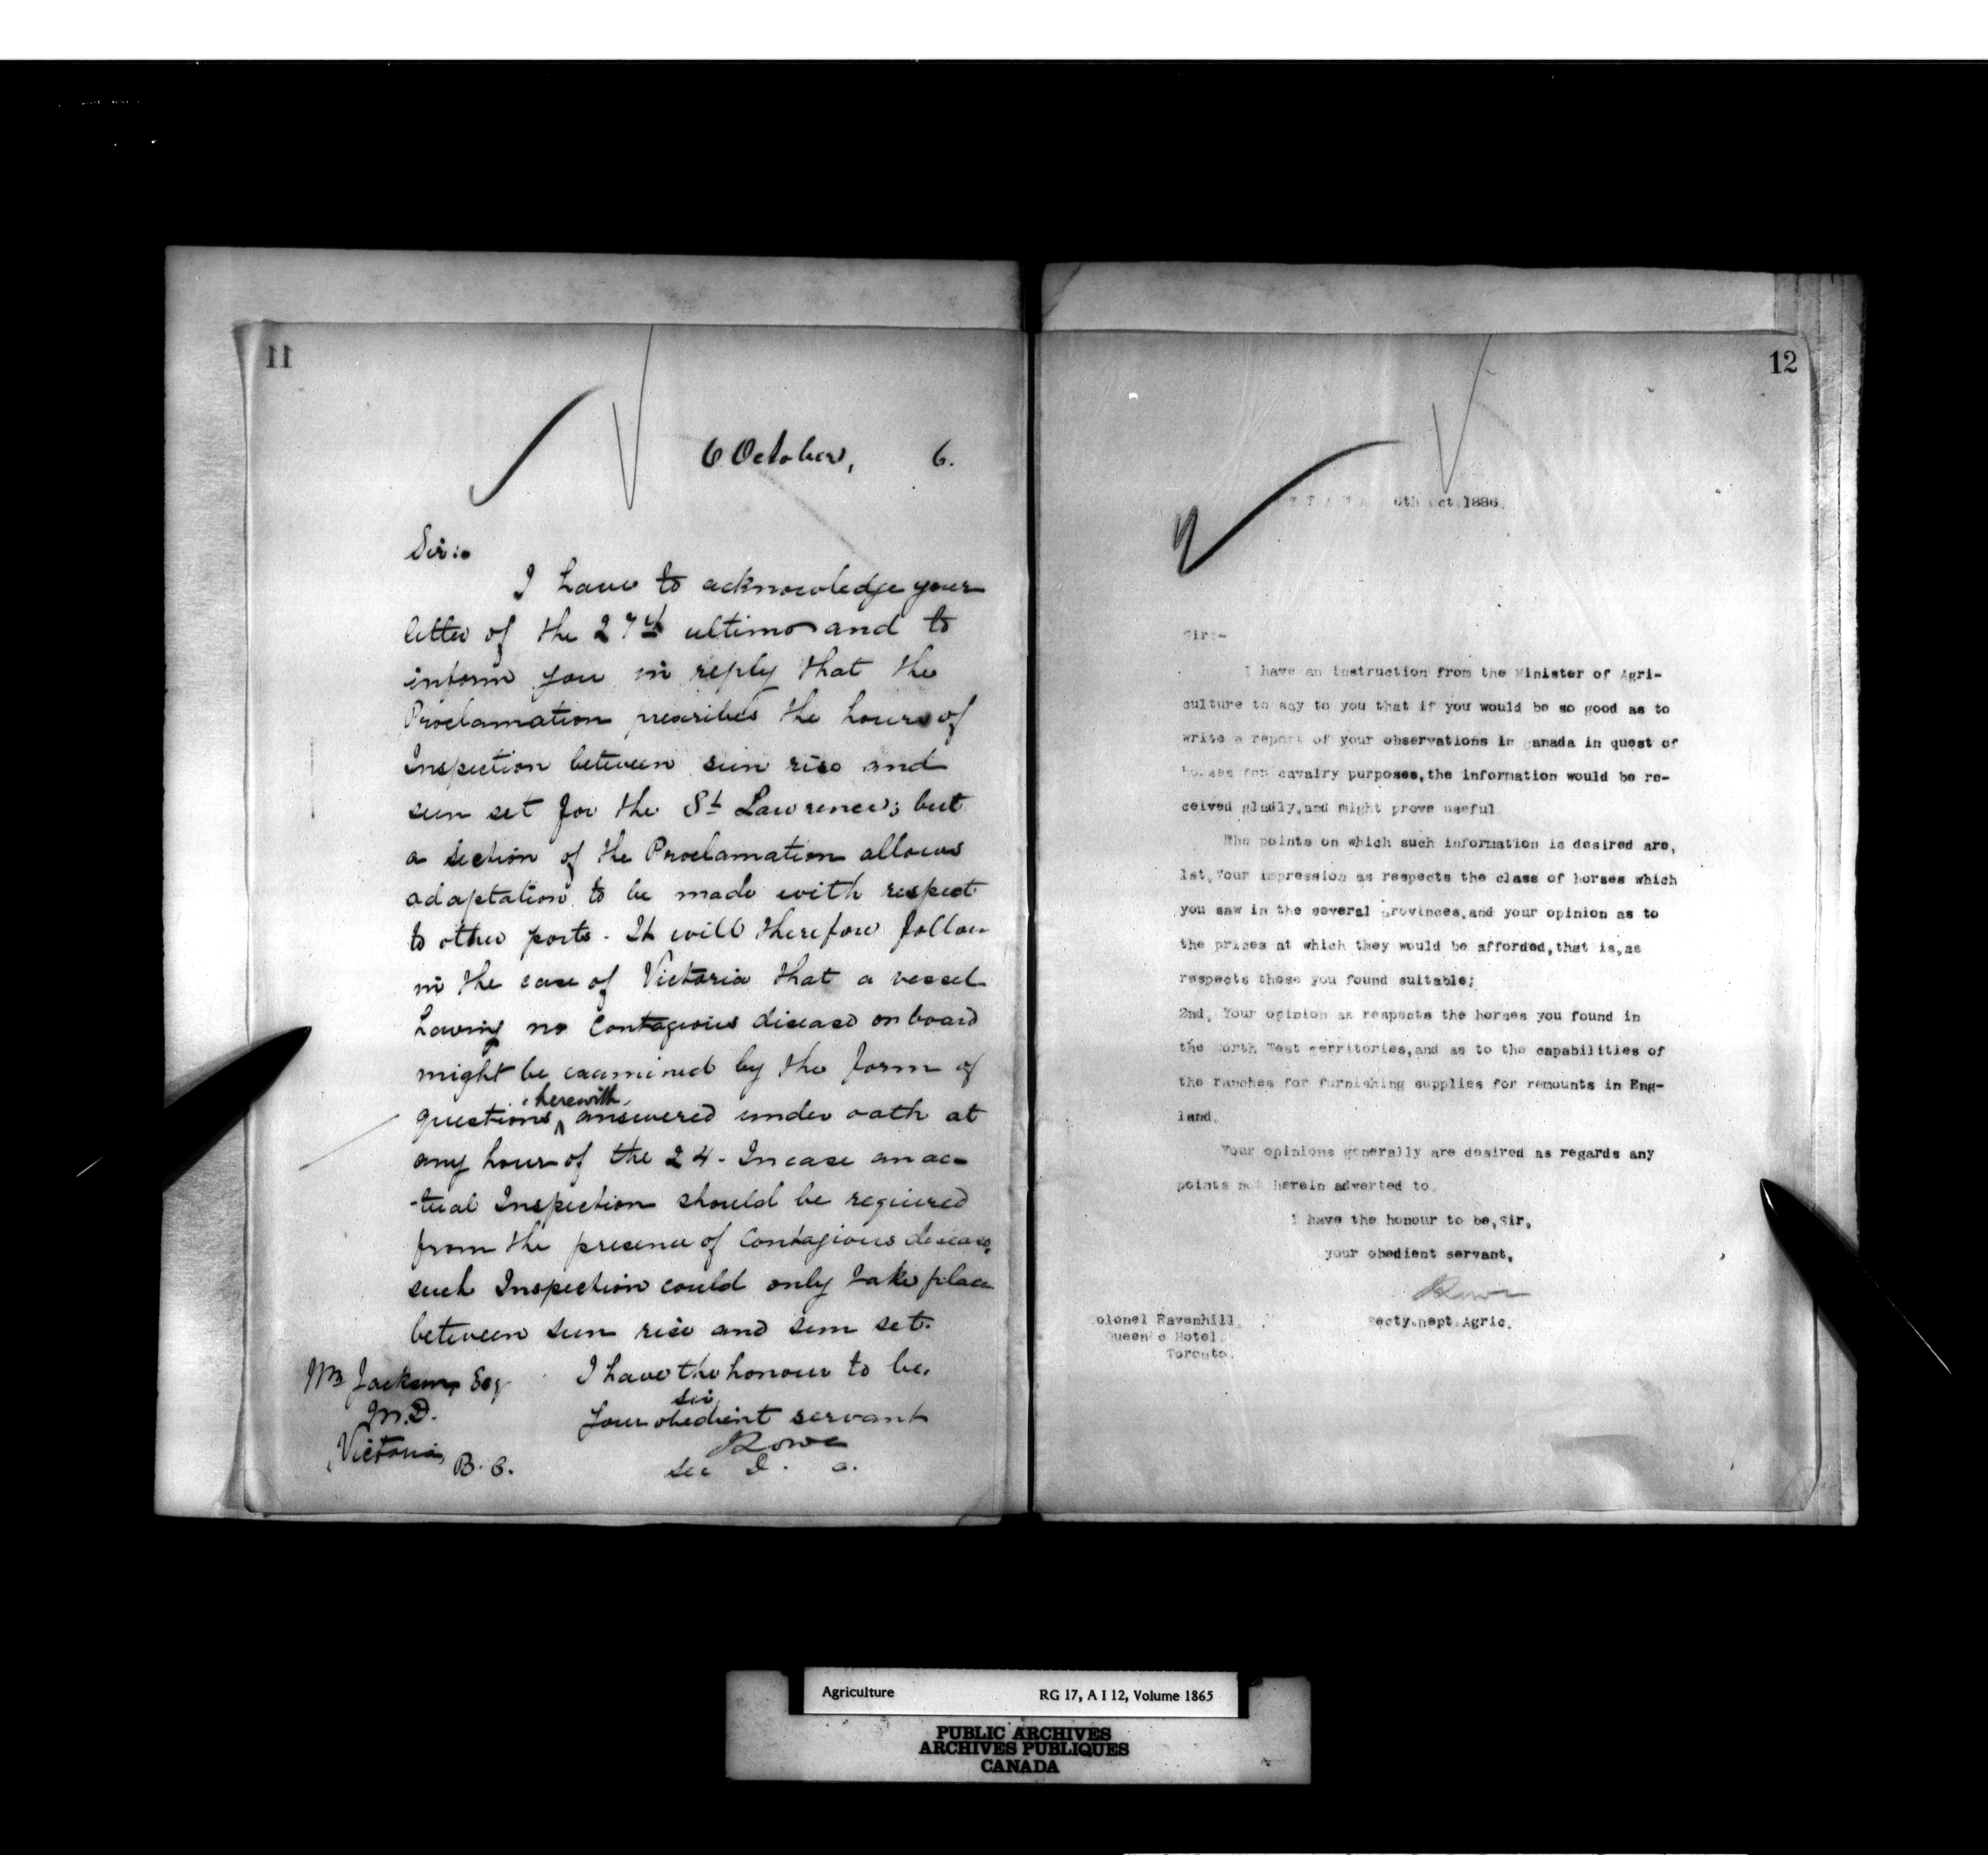 11
6 October, 6.
Sir:-
I have to acknowledge your
letter of the 27th ultimo and to
inform you in reply that the
Proclamation prescribes the hours of
Inspection between sun rise and
sun set for the St Lawrence; but
a section of the Proclamation allows
adaptation to be made with respect
to other ports. It will therefore follow
in the case of Victoria that a vessel
having no Contagious disease on board
might be examined by the form of
herewith
questions answered under oath at
any hour of the 24. In case an ac-
-tual Inspection should be required
from the presence of Contagious disease,
such Inspection could only take place
between sun rise and sun set.
I have the honour to be,
Sir,
Your obedient servant
Sec D. A.
Jackson Esq
M.D.
Victoria,
B.C.
12
6th Oct 1886.
Sir:-
I have an instruction from the Minister of Agri-
culture to say to you that if you would be so good as to
write a report of your observations in Canada in quest of
horses for cavalry purposes, the information would be re-
ceived gladly, and might prove useful.
The points on which such information is desired are,
1st, Your impression as respects the class of horses which
you saw in the several provinces, and your opinion as to
the prices at which they would be afforded, that is, as
respects those you found suitable;
2nd, Your opinion as respects the horses you found in
the North West Territories, and as to the capabilities of
the ranches for furnishing supplies for remounts in Eng-
land.
Your opinions generally are desired as regards any
points not herein adverted to.
I have the honour to be, Sir,
your obedient servant,
Secty. Dept. Agric.
Colonel Ravenhill,
Queen's Hotel,
Toronto.
Agriculture RG 17, A I 12, Volume 1865
PUBLIC ARCHIVES
ARCHIVES PUBLIQUES
CANADA